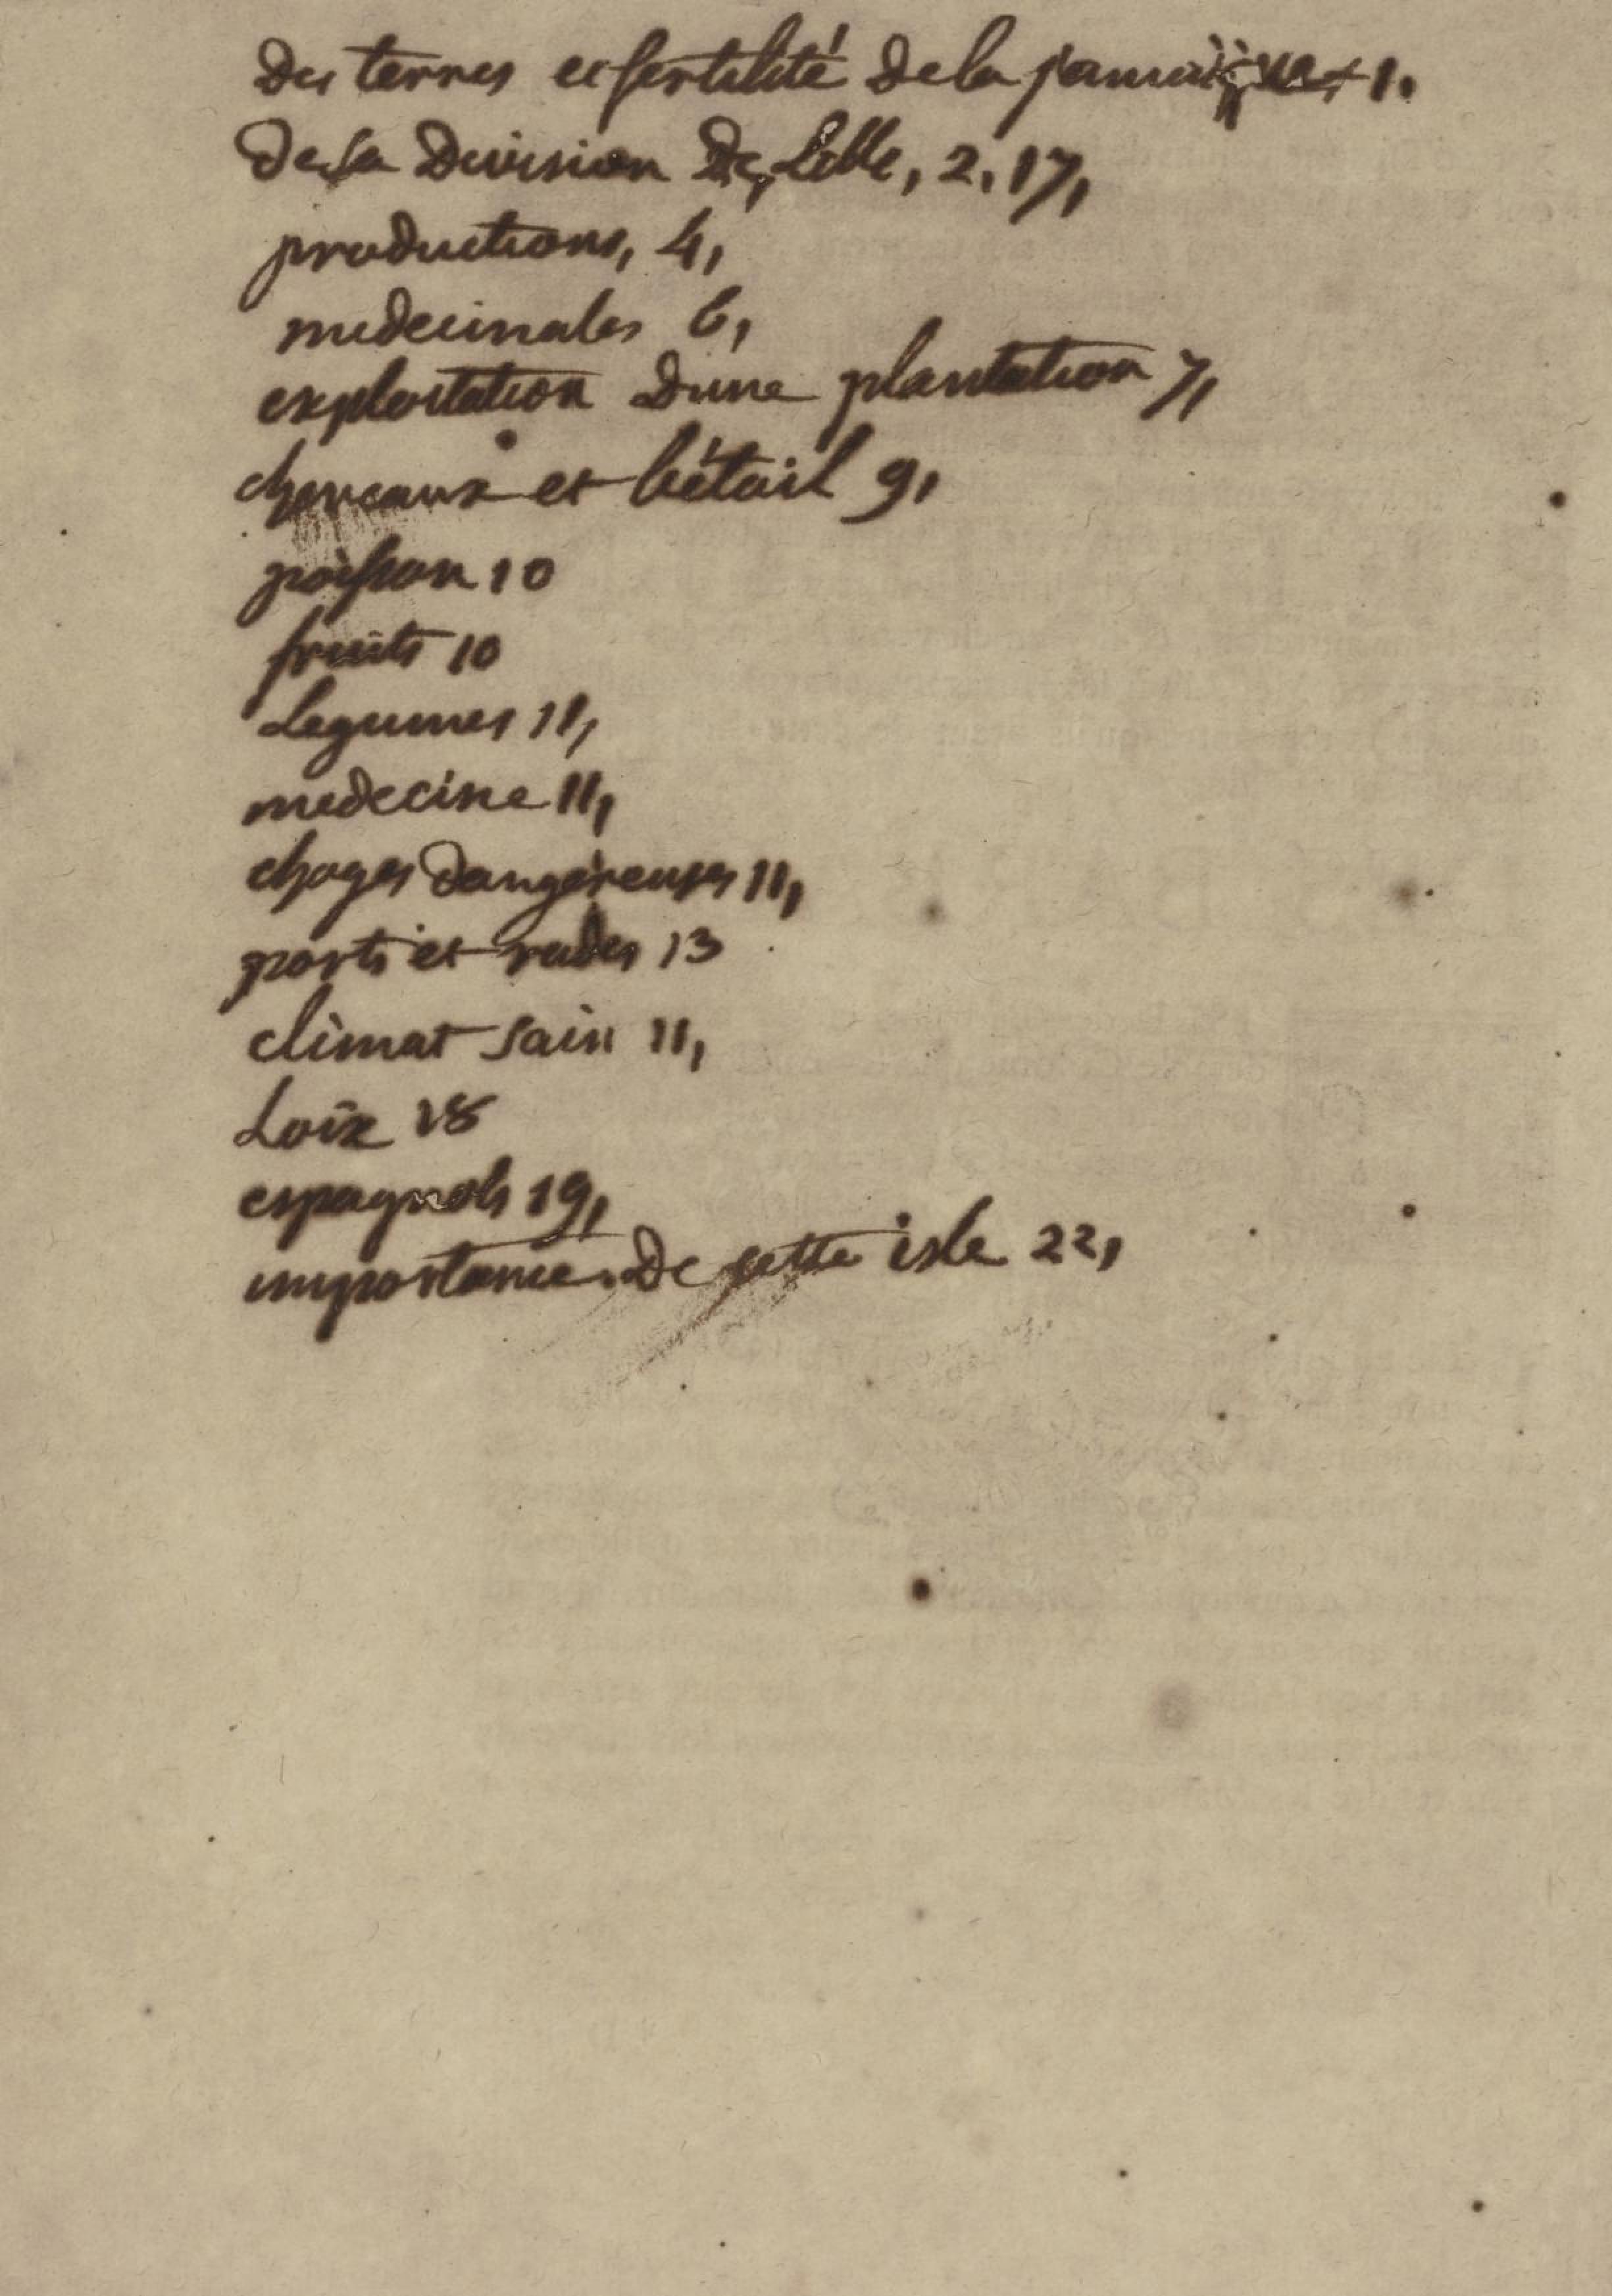 des terres et fertilité de la jamaique 1.
de sa division de Lille, 2, 17,
productions, 4,
medecinales 6,
exploitation dune plantation 7,
cheveaux et bétail 9,
poisson 10
fruits 10
Legumes 11,
medecine 11,
choges dangereuses 11,
ports et rades 13
climat sain 11,
Loix 18
espagnols 19,
importance de cette isle 22,